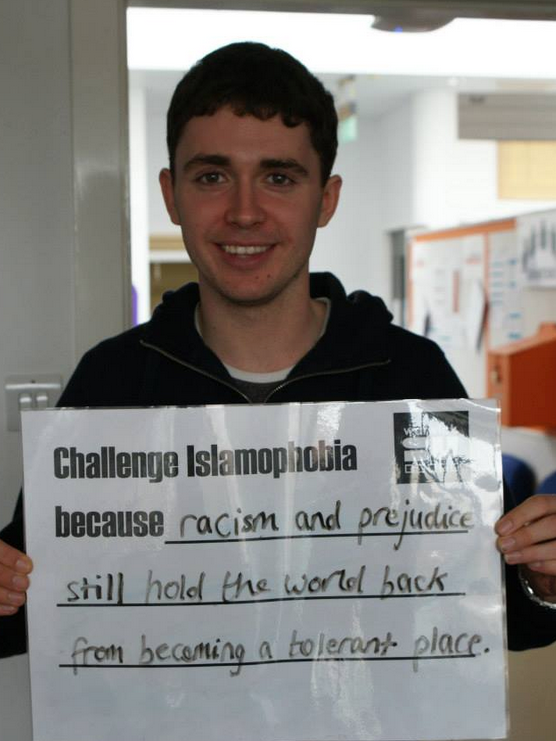 Challenge Islamophobia
because racism and prejudice
still hold the world back
from becoming a tolerant place.